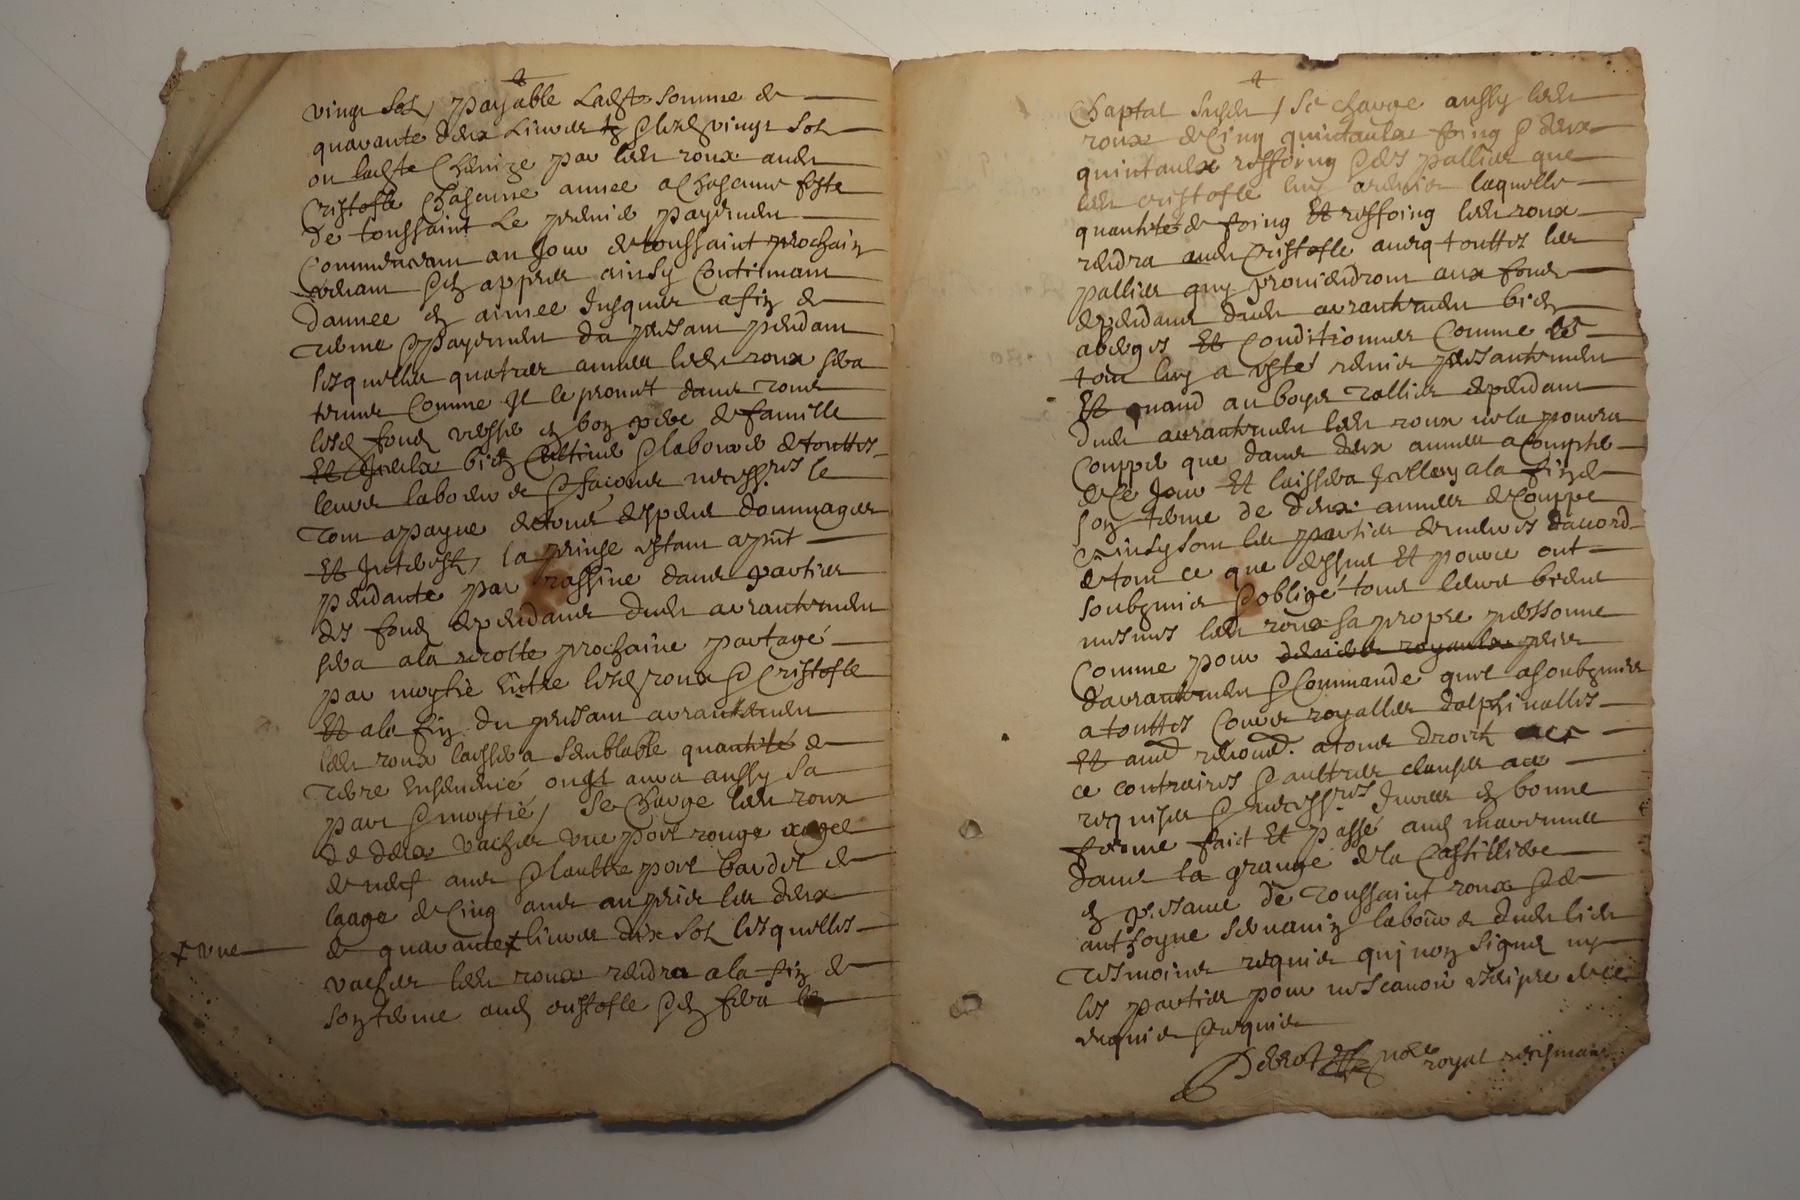 vingt solz payable ladte somme de
quarante deux livres & lesd vingt solz
ou ladte par led roux aud
Cristofle chascune annee a chascune feste
de toussaint le premier payement
Commencant au jour de toussaint prochain
venant & en appres ainsy Continuant
dannee en annee Jusques a fin de
terme & payement du presant pendant
lesquelles quatres annees led roux sera
tenus Comme Il le promet dans tous
lesd fondz en bon pere de famille
Et Iceulx bien Cultiver & labourer de touttes
leurs labeures & facions necessres le
tout a payne de tous despens dommages
Et Interestz la prinse estant a pnt
pendante par rassine dans parties
des fondz dependans dud arrantement
sera a la recolte prochaine partagé
par moytie Entre lesd roux & Cristofle
Et a la fin du presant arrantement
led roux laissera semblable quantité de
terre Ensemencé ou Il aura aussy sa
part & moytié / Se Charge led roux
de deux vaches une poil rouge
de neuf ans & laultre poil bardet de
laage de Cinq ans au prix les deux
+ une
de quarante + livres dix solz lesquelles
vaches led roux rendra a la fin de
son terme aud cristofle & en fera le
Chaptal susd / Se charge aussy led
roux de Cinq quintaulx foing & deux
quintaulx reffoing & des pallies que
led cristofle luy a remis laquelle
quantité de foing Et reffoing led roux
rendra aud Cristofle avecq touttes les
pallies quy proviendront aux fondz
dependans dud arrantement bien
Et Conditionnes Comme le
tout luy a esté remis presantement
Et quand au boys tallies dependant
dud arrantement led roux ne la pourra
Couppe que dans deux annees a Compter
de Ce Jour Et laissera Icelluy a la fin de
son terme de deux annees de Couppe
Ainsy sont les parties demeures daccord
de tout ce que dessus Et pour ce ont
soubzmis & obligé tous leurs biens
mesmes led roux sa propre perssonne
Comme pour deniers royaulx prix
darrantement & Commande quil a soubzmis
a touttes Cours royalles dalphinalles
Et aud renond. a tous droictz
ce contraires & aultres clauses
requises & necessres Jurees en bonne
forme faict Et passé aud
dans la grange de la Castilliere
en presance de toussaint roux & de
anthoyne labour dud lieu
tesmoins requis quj non signé ny
les parties pour ne scavoir escripre de ce
enquis & requis
notre royal